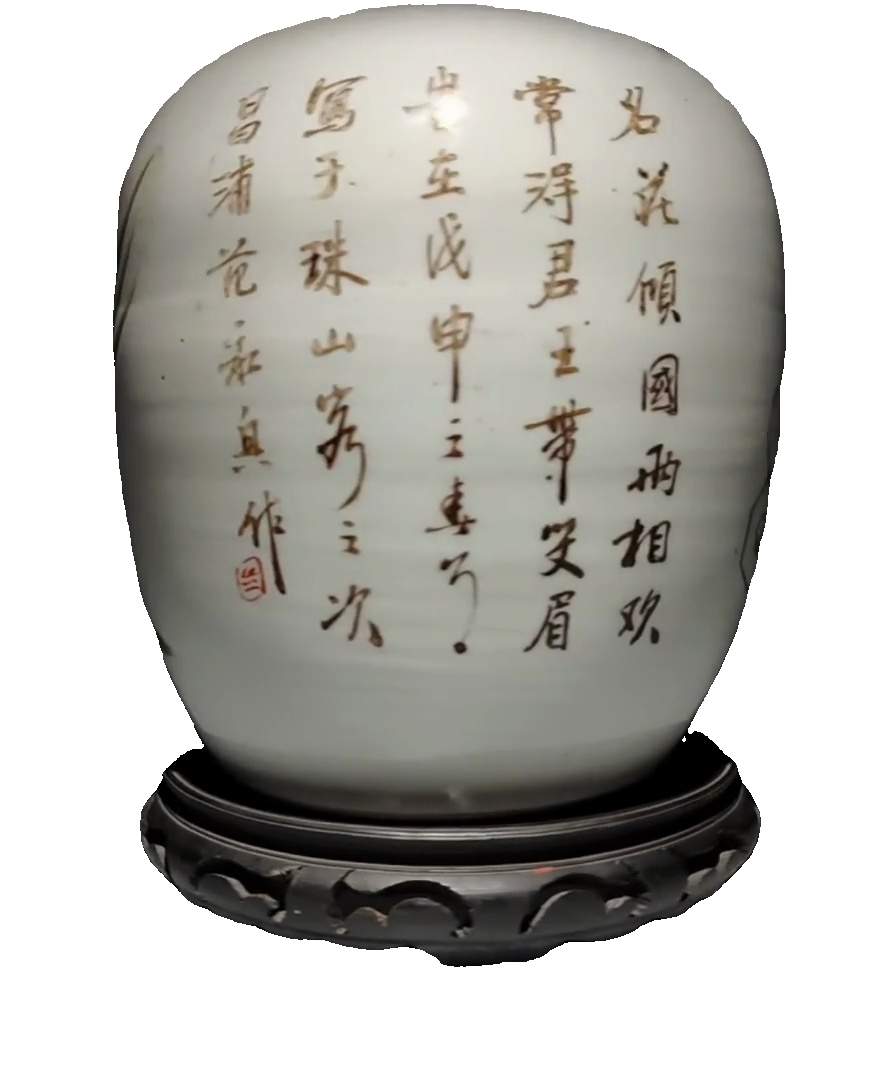 名花傾國兩相欢
常淂君王帶笑眉
旹在戊申之春月
寫于珠山客之次
昌浦范永作